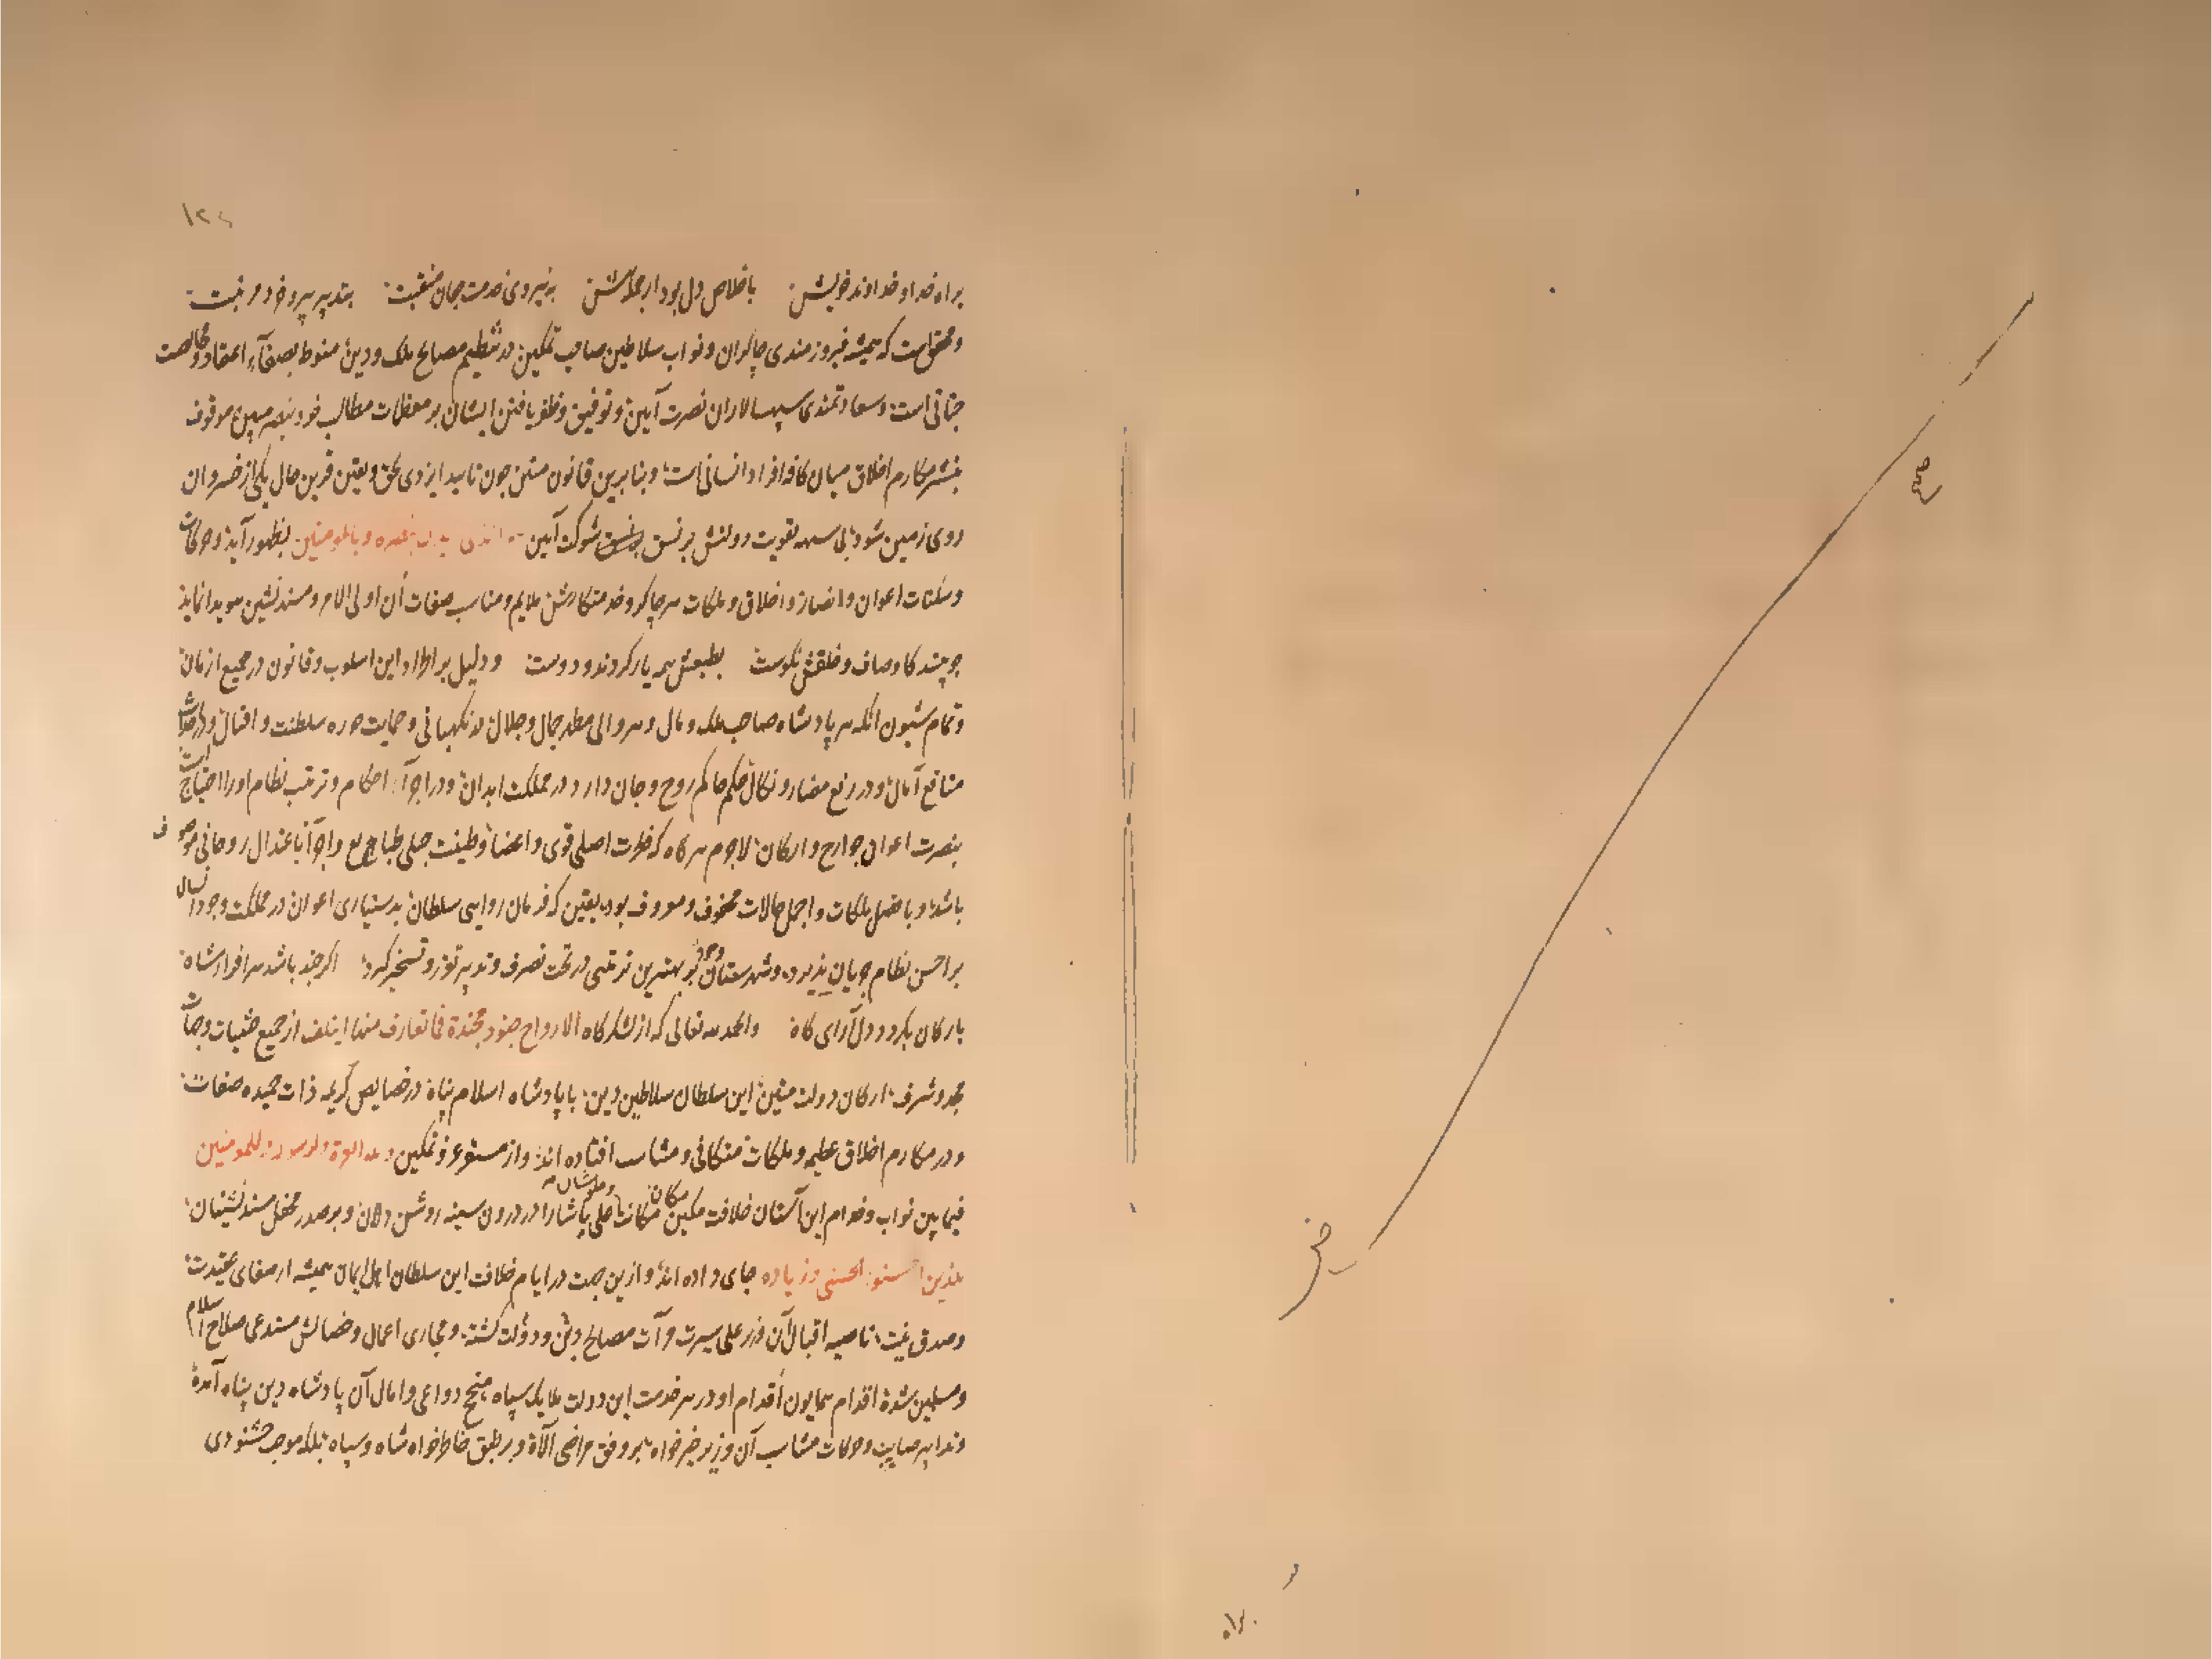 براه خدا و خداوند خویش باخلاص دل بود از جمله پیش به نیروی خدمت جهان بتدبیر پیر و خرد در نبت
و محقق است که همیشه فیروزمندی چاکران و نواب سلاطین صاحب تمکین در تنظیم مصالح ملک و دین منوط بصفآء اعتقاد و خالصت
جنانی است و سعادتمندی سپهسالاران نصرت آیین و توفیق و ظفر یافتن ایشان بر معظمات مطالب خرد و مهین موقوف
بنشر مکارم اخلاق میان کافه افراد انسانی است و بنابرین قانون متین چون تایید ایزدی بحق و یقین قرین حال یکی از خسروان
روی زمین شود تقویت دولتش بر نسق شوکت آیین بنصره و بالمومنین بظهور آید و حرکات
و سکنات اعوان و انصار و اخلاق و ملکات هر چاکر و خدمتکارش ملایم و مناسب صفات آن اولی الامر و مسندنشین هویدا نماید
چو بیند کاوصاف و خلقش نکوست بطبعش همه یار کردند و دوست و دلیل بر اطراد این اسلوب و قانون در جمیع ازمان
و تمام شیون آنکه هر پادشاه صاحب ملک و مال و هر والی مظهر جمال و جلال در نکهبانی و حمایت حوزه سلطنت و اقبال و در
منافع آمال و در رفع مضار و نکال حکم حاکم روح و جان دارد در مملکت ابدان و در اجرآء احکام و ترتیب نظام او را احتیاج است
بنصرت اعوان جوارح و ارکان لاجرم هر گاه که فطرت اصلی قوی و اعضا و طینت جبلی طبایع و اجزآ باعتدال روحانی موصوف
باشد و بافضل ملکات و اجمل حالات و معروف بود بیقین که فرمان روایی سلطان بدستیاری اعوان در مملکت وجود انسان
بر احسن نظام جریان پذیرد و شهرستان وجود بر بهترین ترتیبی در تحت تصرف و تدبیر و تسخیر کیرد اگر چند باشد سرافراز شاه
بارکان بکردد دل آرای کاه والحمد لله تعالی که از لشکرکاه الارواح جنود مجندة فما تعارف منها ایتلف از جمیع حیثیات و جهات
مجد و شرف ارکان دولت متین این سلطان سلاطین دین با پادشاه اسلام پناه در خصایص کریمه ذات حمیده صفات
و در مکارم اخلاق عظیمه و ملکات متکافی و متناسب افتاده اند و از مستقر عز و تمکین ولله العزة ولرسوله وللمومنین
فیما بین نواب و خدام این آستان خلافت مکین مکان را در درون سینه روشن دلان و بر صدر محفل مسندنشینان
للذین احسنوا الحسنی و زیاده جای داده اند و ازین جهت در ایام خلافت این سلطان اهل ایمان همیشه از صفای عقیدت
و صدق نیت ناصیه اقبال آن وزیر علی سیرت مرآت مصالح دین و دولت کشته و مجاری اعمال و خصالش مستدعی صلاح اسلام
و مسلمین شده اقدام همایون اقدام او در هر خدمت این دولت ملایک سپاه منجح دواعی و امال آن پادشاه دین پناه آمده
و تدابیر صایب و حرکات متناسب آن وزیر خیرخواه بر وفق مراضی آلآه و بر طبق خاطرخواه شاه و سپاه بلکه موجب خشنودی
صح